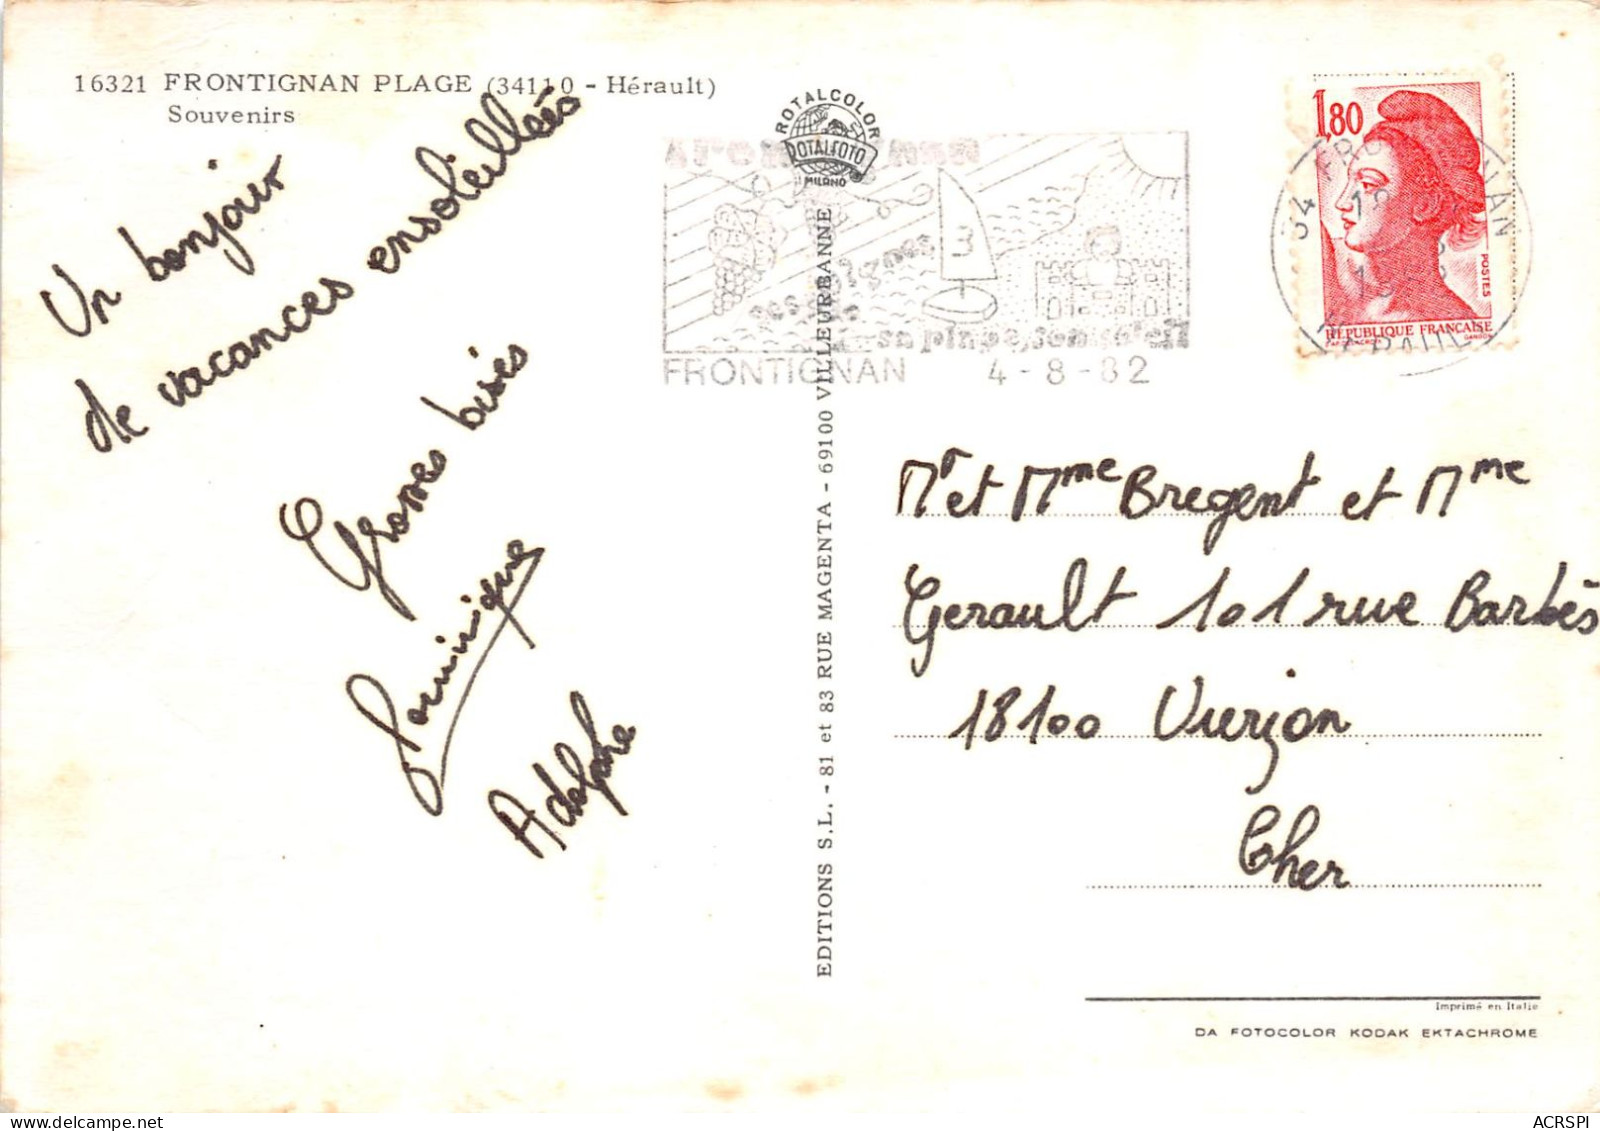 16321 FRONTIGNAN PLAGE (34110 - Hérault)
Souvenirs
Un bonjour
de vacances ensoleillées
Grosses bises
Dominique
Adolphe
ROTALCOLOR
ROTALFOTO
MILANO
EDITIONS S.L. - 81 et 83 RUE MAGENTA - 69100 VILLEURBANNE
ses vignes
sa plage, son soleil
FRONTIGNAN 4-8-82
1,80
POSTES
REPUBLIQUE FRANÇAISE
GANDON
34 FRONTIGNAN
HERAULT
Mr et Mme Bregent et Mme
Gerault 101 rue Barbès
18100 Vierzon
Cher
Imprimé en Italie
DA FOTOCOLOR KODAK EKTACHROME
ACRSPI